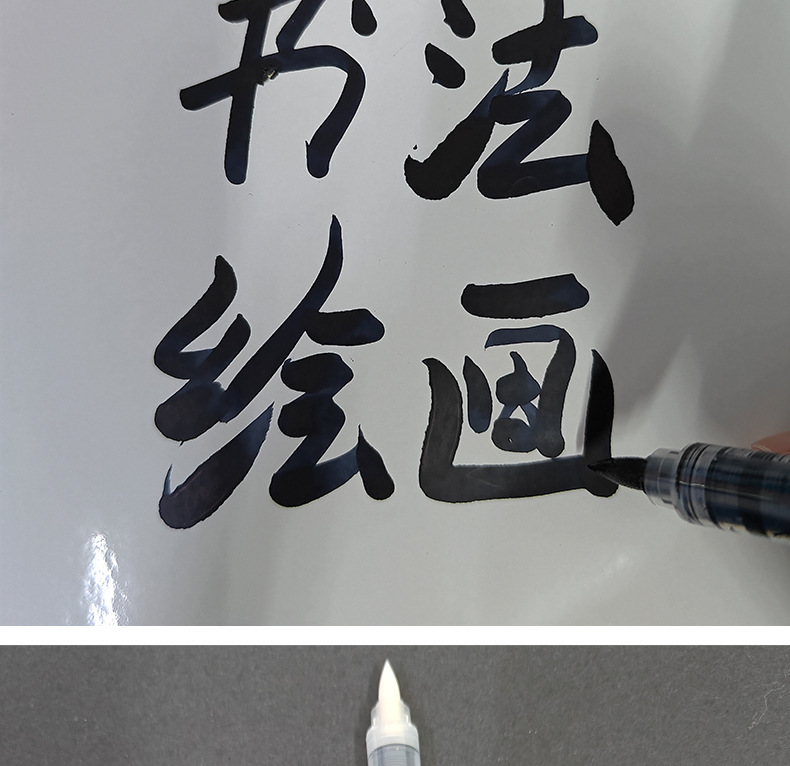 书法
绘画